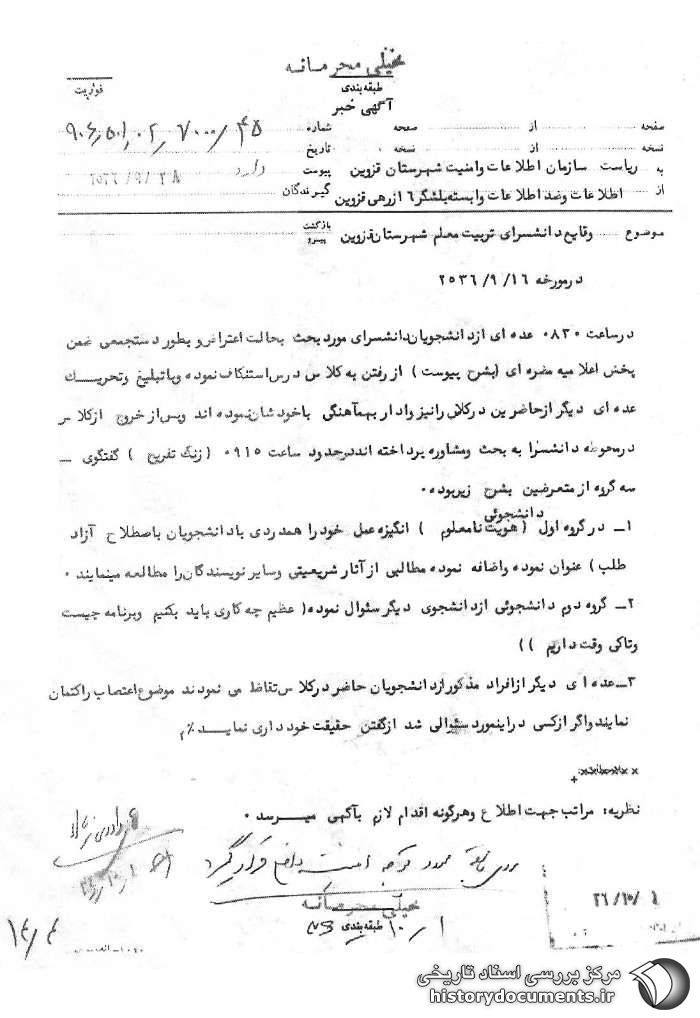 خیلی محرمانه
طبقه‌بندی
فوریت
آگهی خبر
صفحه از صفحه شماره ۹۰۶/۵۰۱/۰۲/۷۰۰۰/۴۵
نسخه از نسخه تاریخ
به ریاست سازمان اطلاعات وامنیت شهرستان قزوین پیوست دارد ۲۵۳۶/۹/۲۸
از اطلاعات وضد اطلاعات وابسته بلشگر ۱۶ زرهی قزوین گیرندگان
موضوع وقایع دانشسرای تربیت معلم شهرستان قزوین بازگشت
پیرو
درمورخه ۲۵۳۶/۹/۱۶
درساعت ۰۸۳۰ عده ای ازدانشجویان دانشسرای مورد بحث بحالت اعتراض و بطور دستجمعی ضمن
پخش اعلامیه مضره ای (بشرح پیوست) از رفتن به کلاس درس استنکاف نموده وباتبلیغ وتحریک
عده ای دیگر ازحاضرین درکلاس رانیز وادار بهماهنگی باخودشان نموده اند وپس از خروج ازکلاس
درمحوطه دانشسرا به بحث ومشاوره پرداخته انددرحدود ساعت ۰۹۱۵ (زنگ تفریح) گفتگوی ـ
سه گروه از متعرضین بشرح زیربوده۰
دانشجوئی
۱ـ در گروه اول (هویت نامعلوم) انگیزه عمل خود را همدردی بادانشجویان باصطلاح آزاد
طلب) عنوان نموده واضافه نموده مطالبی از آثار شریعتی وسایر نویسندگان را مطالعه مینمایند۰
۲ـ گروه دوم دانشجوئی ازدانشجوی دیگر سئوال نموده( عظیم چه کاری باید بکنیم وبرنامه چیست
وتاکی وقت داریم ))
۳ـ عده ای دیگر ازافراد مذکور ازدانشجویان حاضر درکلاس تقاظا می نمودند موضوع اعتصاب راکتمان
نمایند واگر ازکسی دراینمورد سئوالی شد ازگفتن حقیقت خود داری نمایند٪م
نظریه: مراتب جهت اطلاع وهرگونه اقدام لازم بآگهی میرسد۰
خیلی محرمانه
طبقه‌بندی
۳۶/۱۰/۱
۱۴/۴
مرکز بررسی اسناد تاریخی
historydocuments.ir